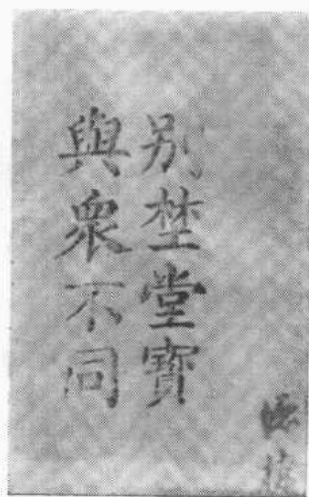 别埜堂寶
與衆不同